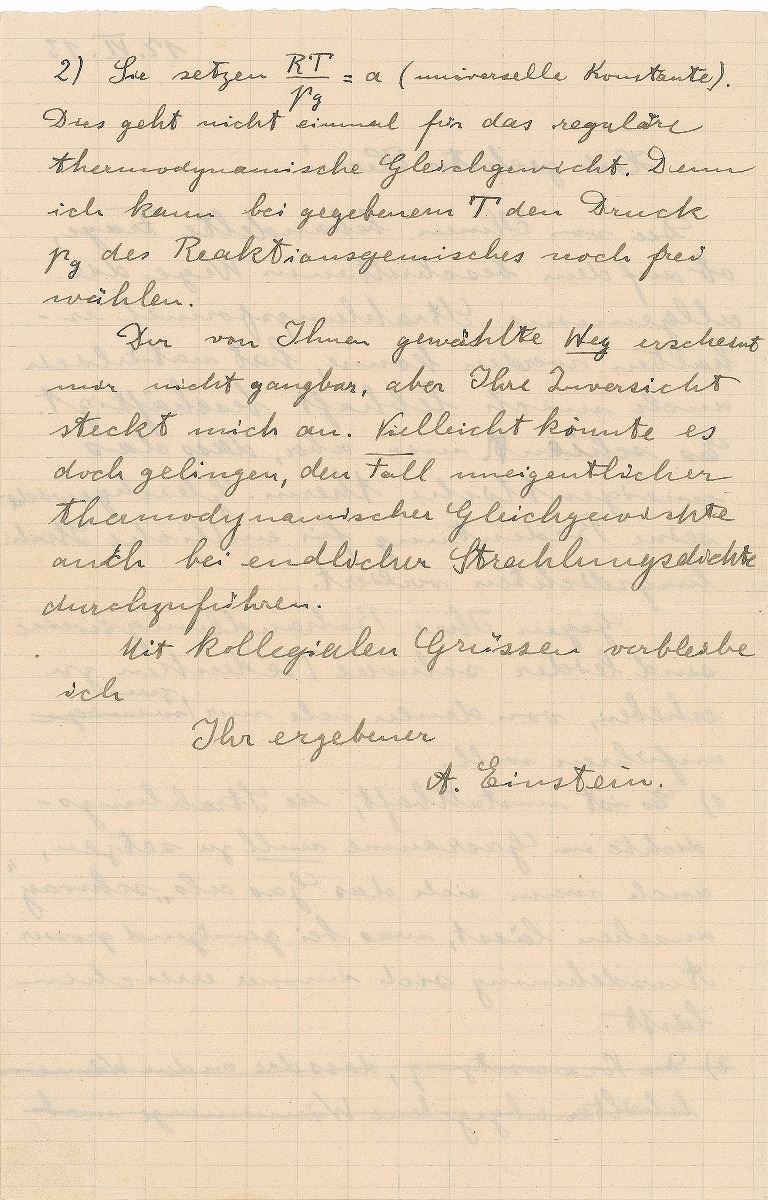 2) Sie setzen RT/pg = a (universelle Konstante).
Dies geht nicht einmal für das reguläre
thermodynamische Gleichgewicht. Denn
ich kann bei gegebenem T den Druck
pg des Reaktionsgemisches noch frei
wählen.
Der von Ihnen gewählte Weg erscheint
mir nicht gangbar, aber Ihre Zuversicht
steckt mich an. Vielleicht könnte es
doch gelingen, den Fall uneigentlicher
thermodynamischer Gleichgewichte
auch bei endlicher Strahlungsdichte
durchzuführen.
Mit kollegialen Grüssen verbleibe
ich
Ihr ergebener
A. Einstein.